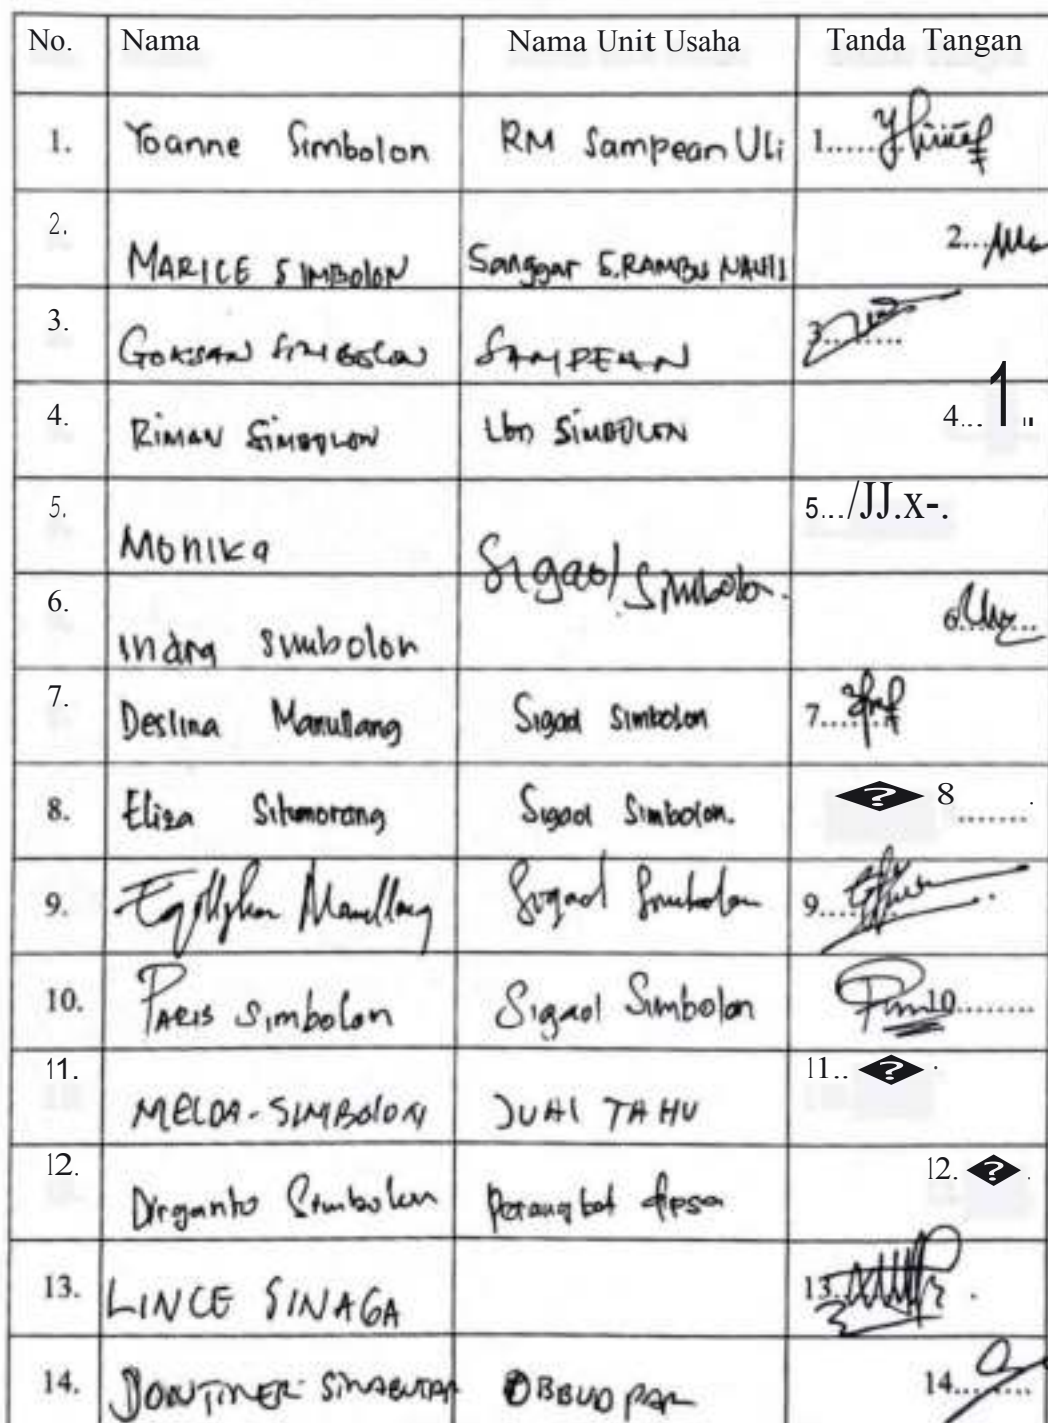 No. Nama Nama Unit Usaha Tanda Tangan
1. Yoanne Simbolon RM Sampean Uli 1.....
2. MARICE SIMBOLON Sanggar S.RAMBU NAULI 2...
3. GOKSAN SIMBOLON SAMPEAN 3.........
4. RIMAN SIMBOLON Lbn SIMBOLON 4...
5. MONIKA Sigaol Simbolon. 5...
6. Indra Simbolon 6...
7. Deslina Manullang Sigaol Simbolon 7...
8. Eliza Situmorang Sigaol Simbolon. 8.......
9. Manullang Sigaol Simbolon 9...
10. PARIS Simbolon Sigaol Simbolon 10.........
11. MELDA-SIMBOLON JUAL TAHU 11..
12. Dirganto Simbolon Perangkat desa 12.
13. LINCE SINAGA 13..
14. 14......